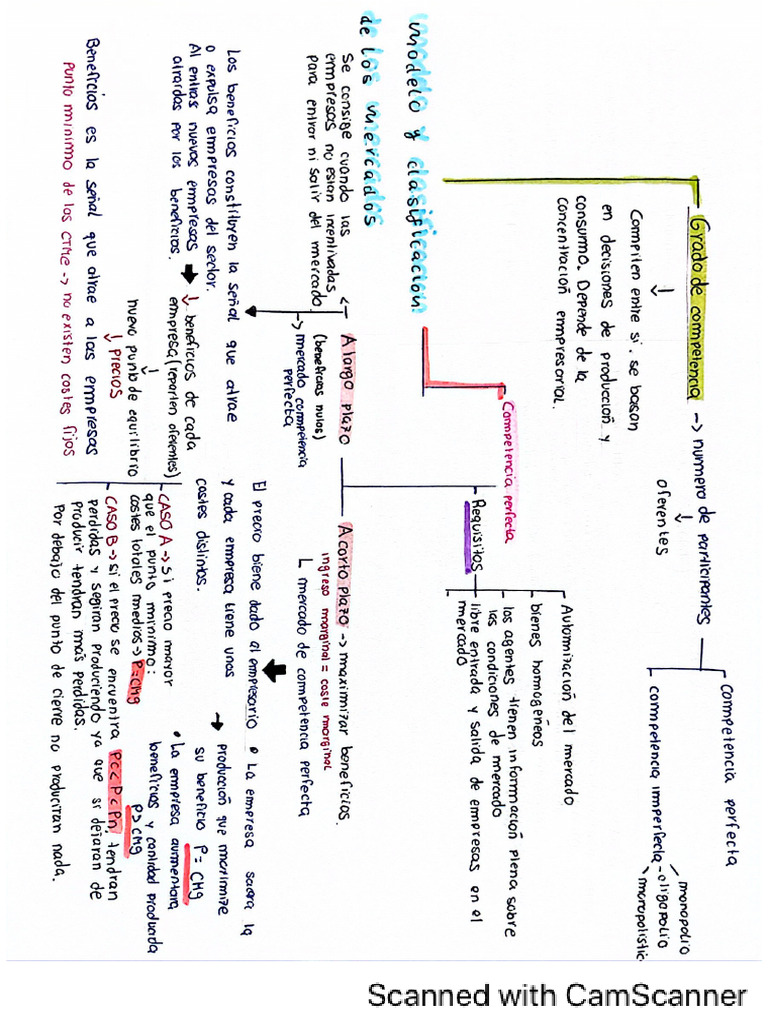 modelo y clasificación
de los mercados
Grado de competencia -> nummero de participantes
↓
oferentes
Compiten entre si. se basan
en decisiones de producción y
consumo. Depende de la
concentración empresarial.
Competencia perfecta
competencia imperfecta
monopolio
oligopolio
monopolistic
Competencia perfecta
Requisitos
Automización del mercado
bienes homogéneos
los agentes tienen información plena sobre
las condiciones de mercado
libre entrada y salida de empresas en el
mercado
A largo plazo
(beneficios nulos)
-> mercado competencia
perfecta
Se consige cuando las
empresas no estan incentivadas
para entrar ni salir del mercado.
Los beneficios constituyen la señal que atrae
o expulsa empresas del sector.
Al entrar nuevas empresas
atraidas por los beneficios.
↓ beneficios de cada
empresa (reparten oferentes)
↓
nuevo punto de equilibrio
↓ precios
Beneficios es la señal que atrae a las empresas
Punto minimo de los CTMe -> no existen costes fijos
A corto plazo -> maximizar beneficios.
ingreso marginal = coste marginal
mercado de competencia perfecta
El precio biene dado al empresario
y cada empresa tiene unos
costes distintos.
• La empresa sacara la
producción que maximize
su beneficio P = CMg
• La empresa aumentara
beneficios y cantidad producida
P > CMg
CASO A -> si precio mayor
que el punto minimo:
costes totales medios -> P=CMg
CASO B -> si el precio se encuentra Pc < P < Pn, tendran
perdidas y segiran produciendo ya que si dejaran de
Producir tendran mas perdidas.
Por debajo del punto de cierre no produciran nada.
Scanned with CamScanner